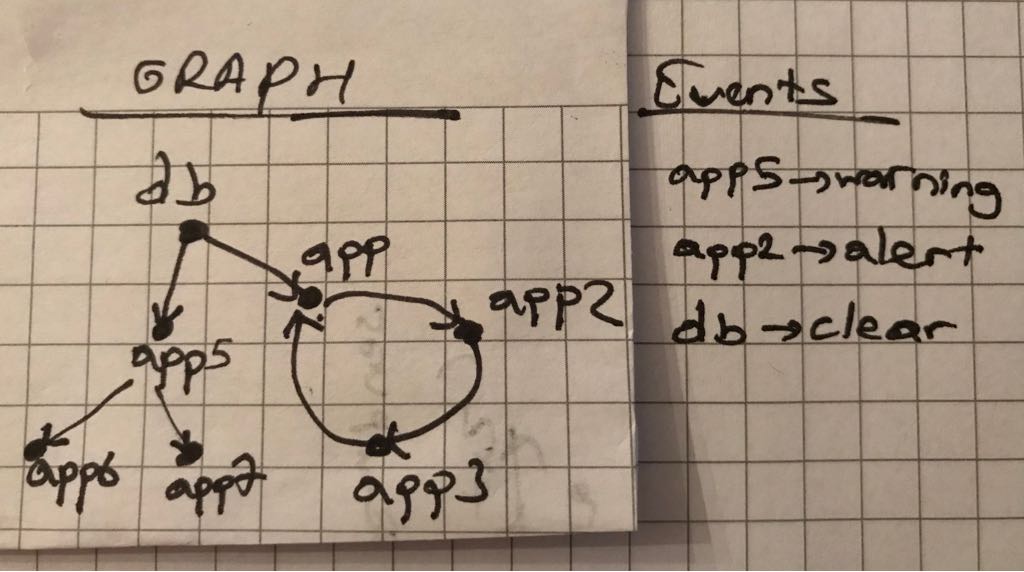 GRAPH
db
app
app2
app5
app6
app7
app3
Events
app5→warning
app2→alert
db→clear